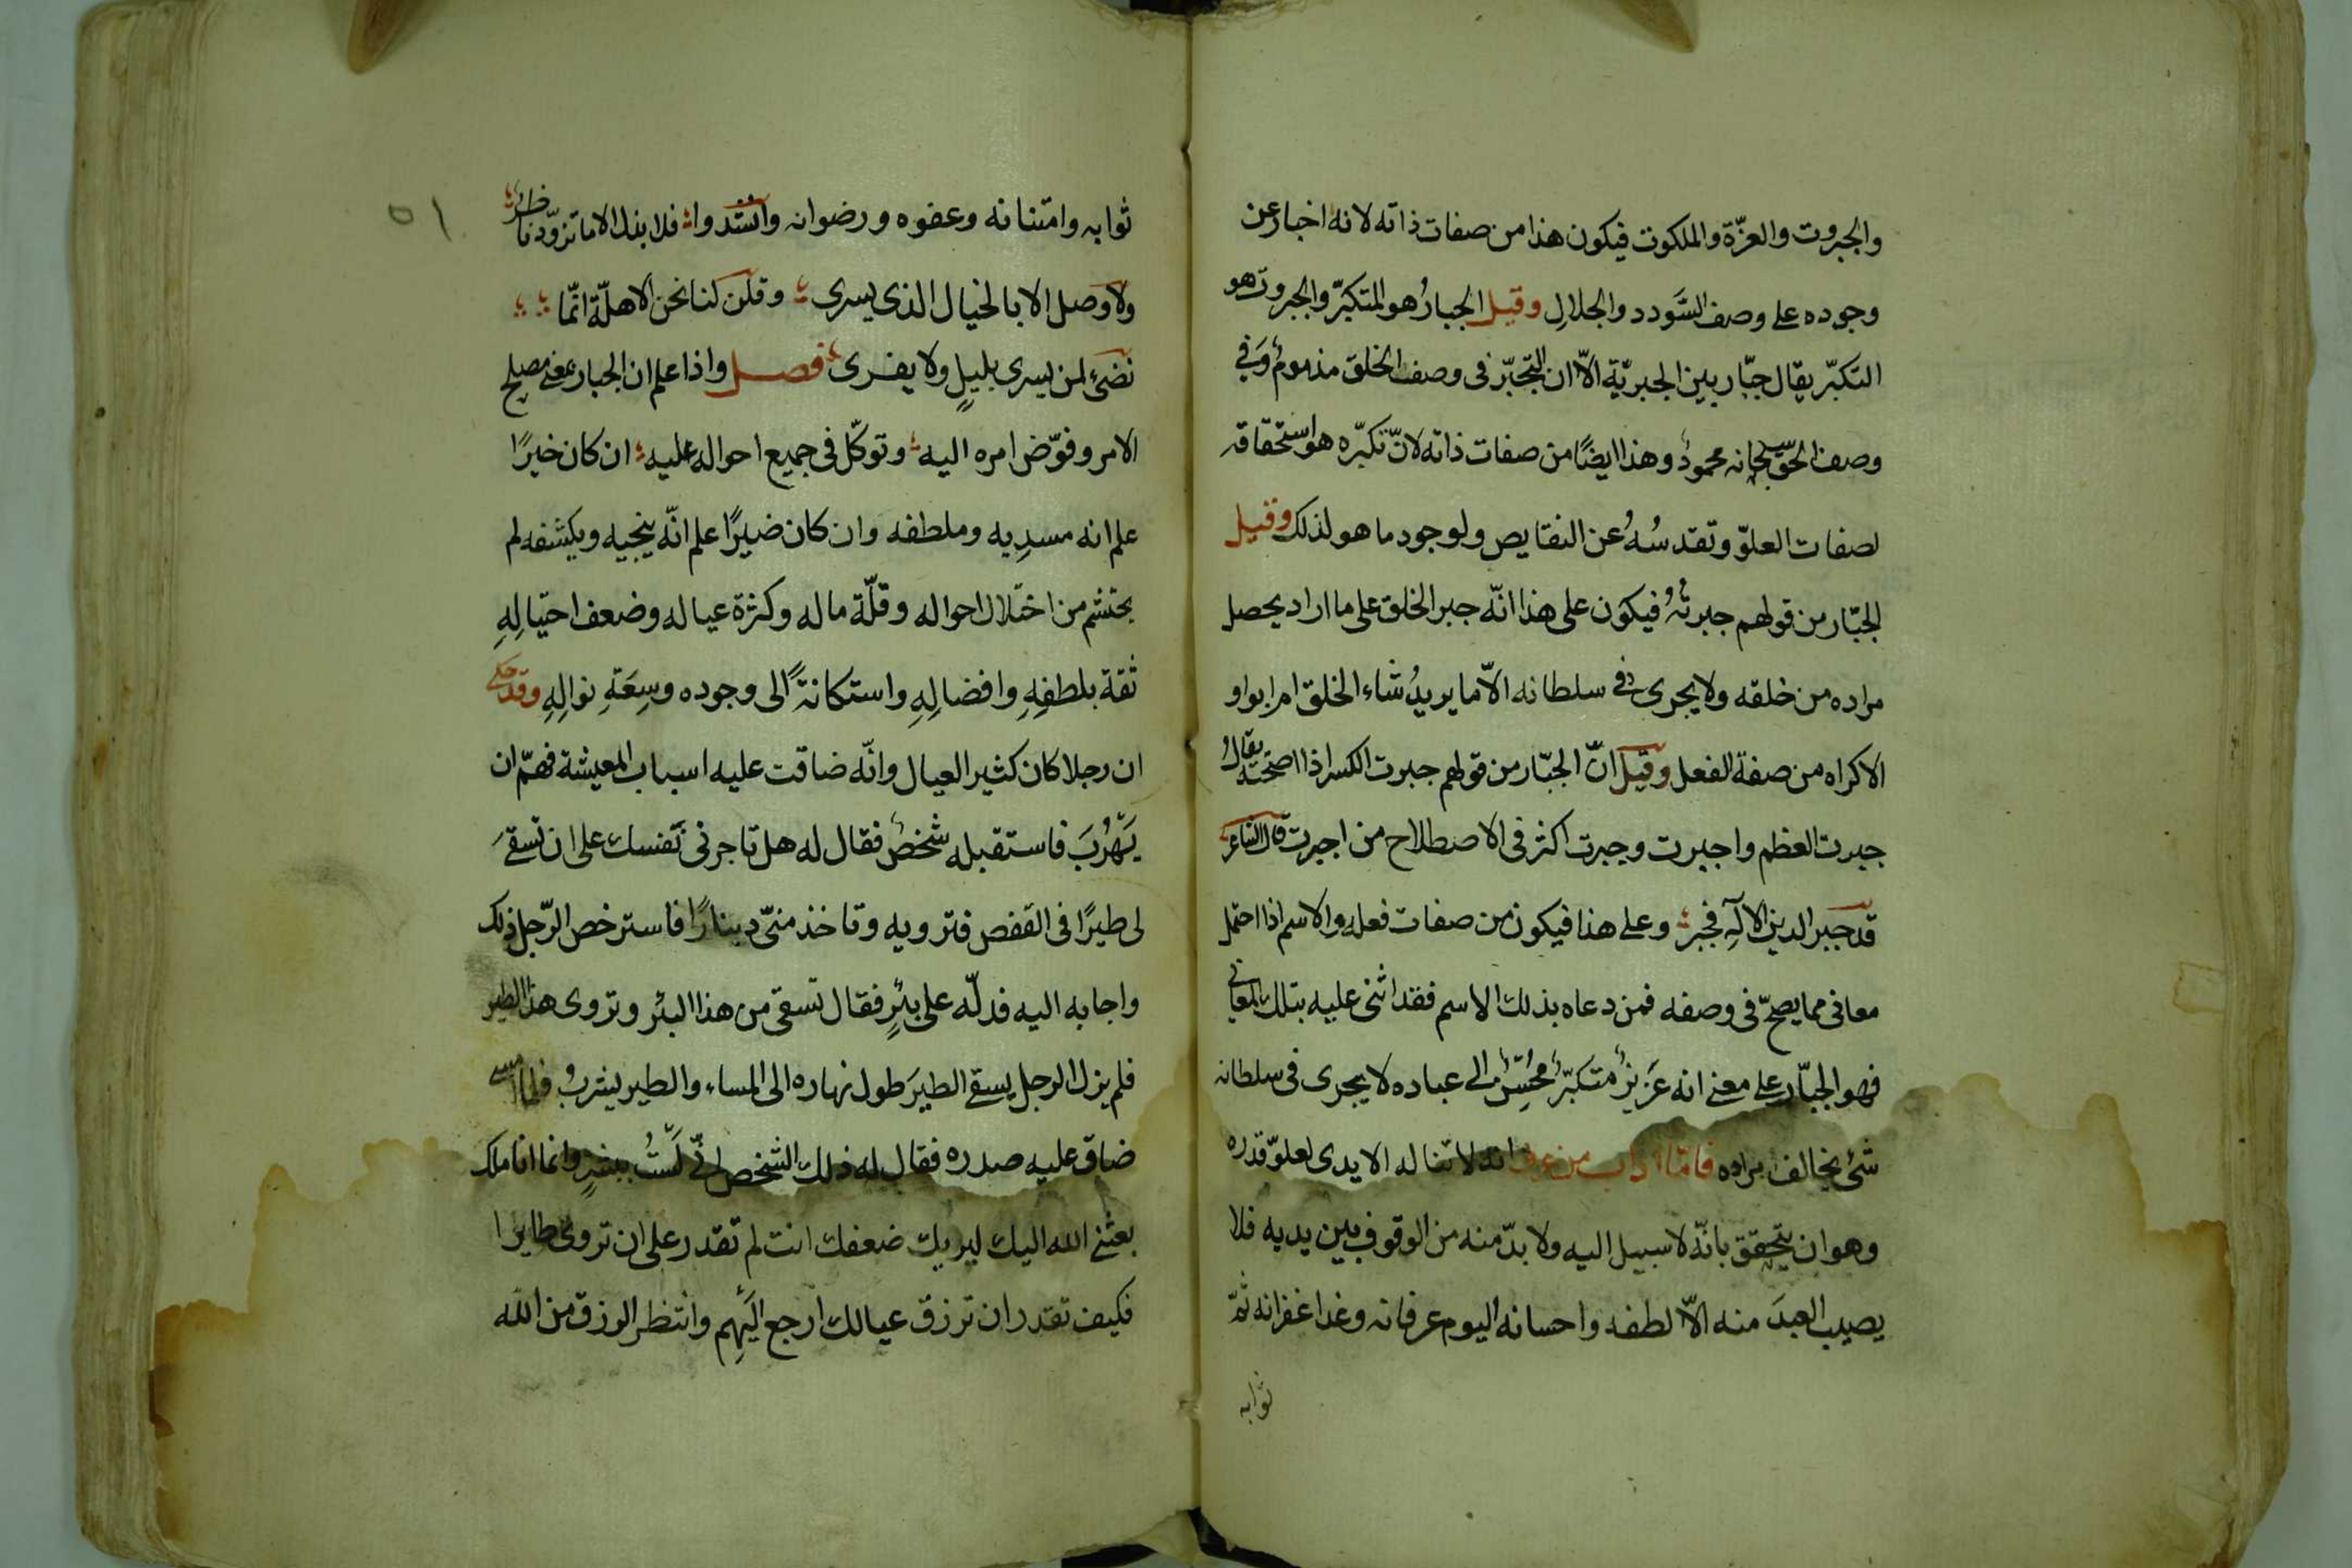 والجبروت والعزّة والملكوت فيكون هذا من صفات ذاته لانه اخبار عن
وجوده على وصف السَّودد والجلالِ وقيل الجبارُ هو المتكبّر والجبروت هو
التكبّر يقال جبّار بين الجبريّة الاّ ان التجبّر فى وصف الخلق مذمومٌ وفي
وصف الحقّ سبحانه محمودٌ وهذا ايضًا من صفات ذاته لانّ تكبّره هو استحقاقه
لصفات العلوّ وتقدسُهُ عن النقايص ولوجود ما هو لذلك وقيل
الجبّار من قولهم جبرتُهُ فيكون على هذا انّه جبر الخلق على ما اراد يحصل
مراده من خلقه ولا يجرى فى سلطانه الاّ ما يريدُ شاء الخلق ام ابوا و
الاكراه من صفة الفعل وقيل انّ الجبّار من قولهم جبرت الكسر اذا اصلحته يقال
جبرت العظم واجبرت وجبرت اكثر فى الاصطلاح من اجبرت قال الشاعر
قد جبر الدين الالهِ فجبر وعلى هذا فيكون من صفات فعله والاسم اذا احتمل
معانى مما يصحّ فى وصفه فمن دعاه بذلك الاسم فقد اثنى عليه بتلك المعانى
فهو الجبّار على معنى انه عَزيزٌ متكبّرٌ محُسِنٌ الى عباده لا يجرى فى سلطانه
شئ يخالف مراده فامّا اداب من عرف انه لا تناله الايدى لعلوّ قدره
وهو ان يتحقق بانّه لا سبيل اليه ولا بدّ منه من الوقوف بين يديه فلا
يصيب العبدَ منه الاّ لطفه واحسانه اليوم عرفانه وغدا غفرانه ثمّ
ثوابه
٥١
ثوابه وامتنانه وعفوه ورضوانه وانشدوا فلا بذل الا ما تزوّد ناظر
ولا وصل الا بالخيال الذى يسرى وقلن كنا نحن الاهلّة انّما
نضئ لمن يسرى بليلٍ ولا يقرى فصل واذا علم ان الجبار بمعنى مصلح
الامر وفوّض امره اليه وتوكّل فى جميع احواله عليه ان كان خيرًا
علم انه مسدِيه وملطفه وان كان ضيرًا علم انّه ينجيه ويكشفه لم
يحتشم من اختلال احواله وقلّة ماله وكثرة عياله وضعف احتيالِهِ
ثقة بلطفِهِ وافضالِهِ واستكانةً الى وجوده وسِعَةِ نوالِهِ وقد حكى
ان رجلا كان كثير العيال وانّه ضاقت عليه اسباب المعيشة فهمّ ان
يَهْرُبَ فاستقبله شخصٌ فقال له هل تاجرنى نَفسك على ان تسقىَ
لى طيرًا فى القفص فترويه وتاخذ منّى دينارًا فاسترخص الرّجل ذلك
واجابه اليه فدلّه على بئرٍ فقال تسقى من هذا البئر وتروى هذا الطير
فلم يزل الرجل يسقى الطيرَ طول نهاره الى المساء والطير يشربُ فلما امسى
ضاق عليه صدره فقال له ذلك الشخص انّى لَسْتُ ببشرٍ وانما انا ملك
بعثنى الله اليك ليريك ضعفك انت لم تقدر على ان تروى طايرا
فكيف تقدر ان ترزق عيالك ارجع اليَهِم وانتظر الرزق من الله